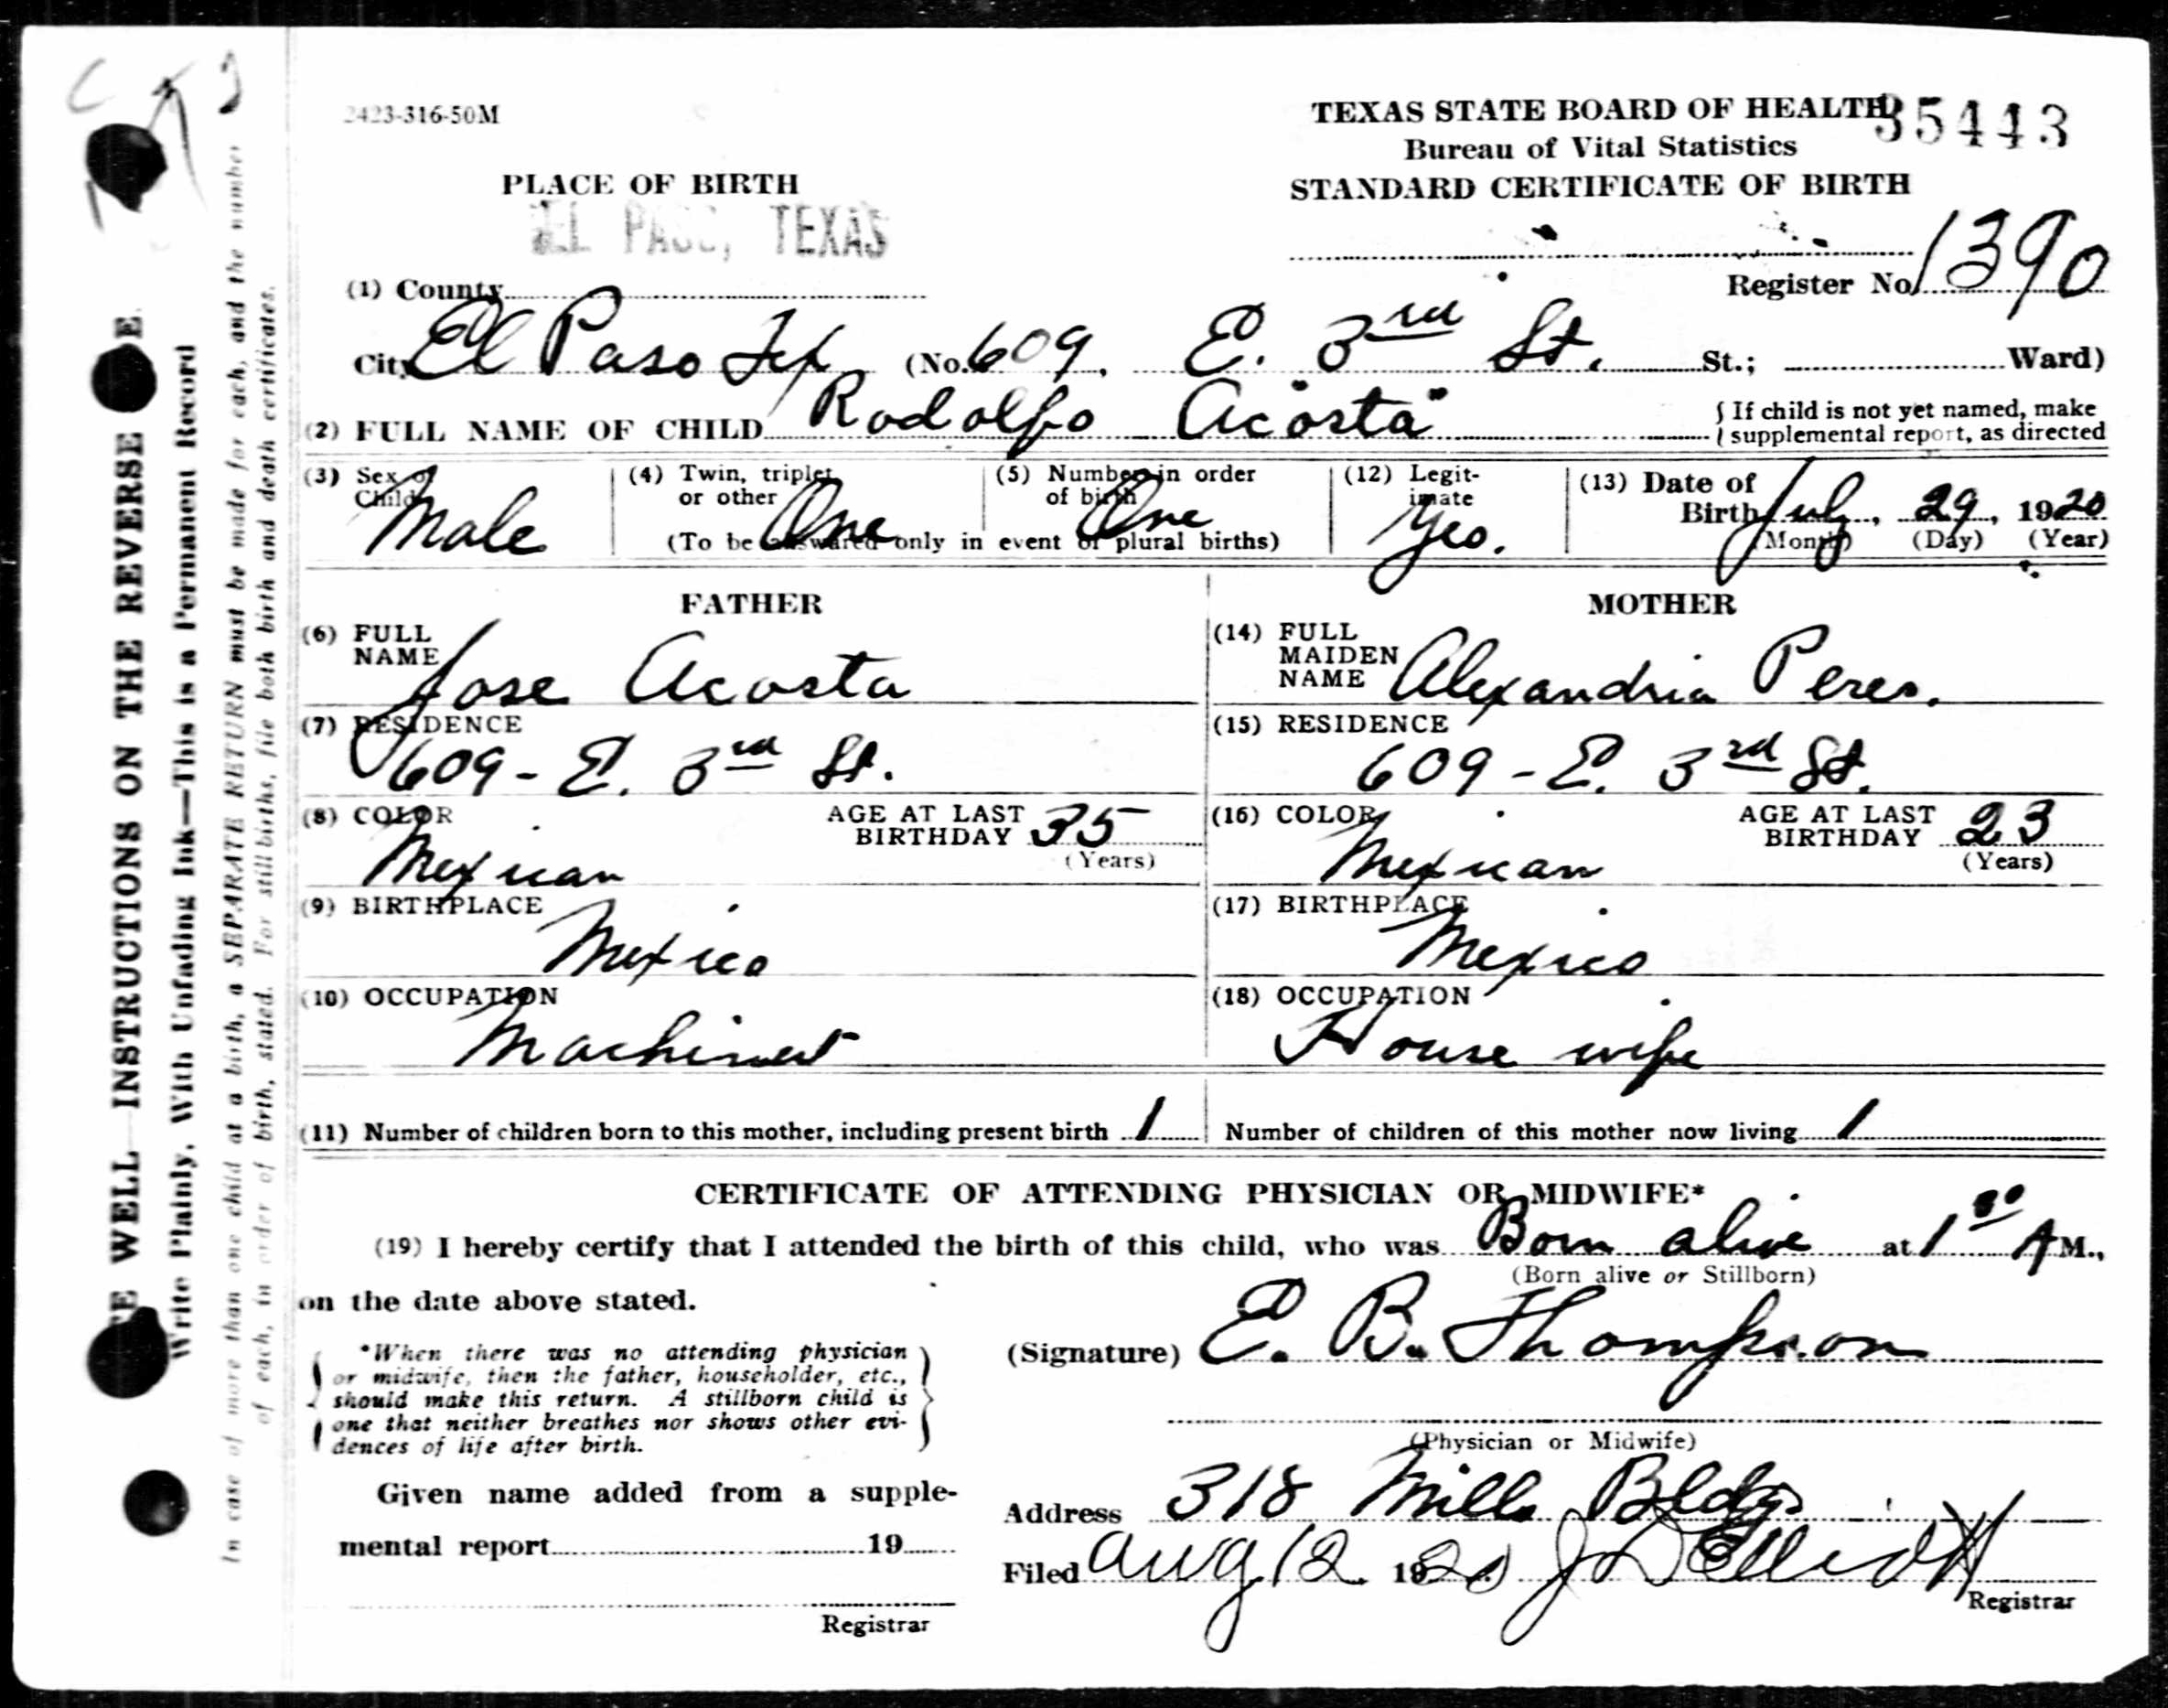 2423-316-50M
TEXAS STATE BOARD OF HEALTH
35443
Bureau of Vital Statistics
PLACE OF BIRTH
STANDARD CERTIFICATE OF BIRTH
EL PASO, TEXAS
(1) County
Register No. 1390
City El Paso Tex (No. 609, E. 3rd St. St.; Ward)
(2) FULL NAME OF CHILD Rodolfo "Acosta"
{ If child is not yet named, make
supplemental report, as directed
(3) Sex of Child Male
(4) Twin, triplet, or other One
(5) Number in order of birth One
(To be answered only in event of plural births)
(12) Legitimate Yes.
(13) Date of Birth July, 29, 1920
(Month) (Day) (Year)
FATHER
(6) FULL NAME Jose Acosta
(7) RESIDENCE
609 - E. 3rd St.
(8) COLOR Mexican
AGE AT LAST BIRTHDAY 35
(Years)
(9) BIRTHPLACE
Mexico
(10) OCCUPATION
Machinest
(11) Number of children born to this mother, including present birth 1
MOTHER
(14) FULL MAIDEN NAME Alexandria Peres.
(15) RESIDENCE
609 - E. 3rd St.
(16) COLOR Mexican
AGE AT LAST BIRTHDAY 23
(Years)
(17) BIRTHPLACE
Mexico
(18) OCCUPATION
House wife
Number of children of this mother now living 1
CERTIFICATE OF ATTENDING PHYSICIAN OR MIDWIFE*
(19) I hereby certify that I attended the birth of this child, who was Born alive at 1 30 A M.,
(Born alive or Stillborn)
on the date above stated.
*When there was no attending physician
or midwife, then the father, householder, etc.,
should make this return. A stillborn child is
one that neither breathes nor shows other evi-
dences of life after birth.
(Signature) E. B. Thompson
(Physician or Midwife)
Given name added from a supple-
mental report 19
Registrar
Address 318 Mills Bldg
Filed Aug 12 1920 J D Elliott
Registrar
WELL INSTRUCTIONS ON THE REVERSE
Write Plainly, With Unfading Ink—This is a Permanent Record
In case of more than one child at a birth, a SEPARATE RETURN must be made for each, and the number
of each, in order of birth, stated. For stillbirths, file both birth and death certificates.